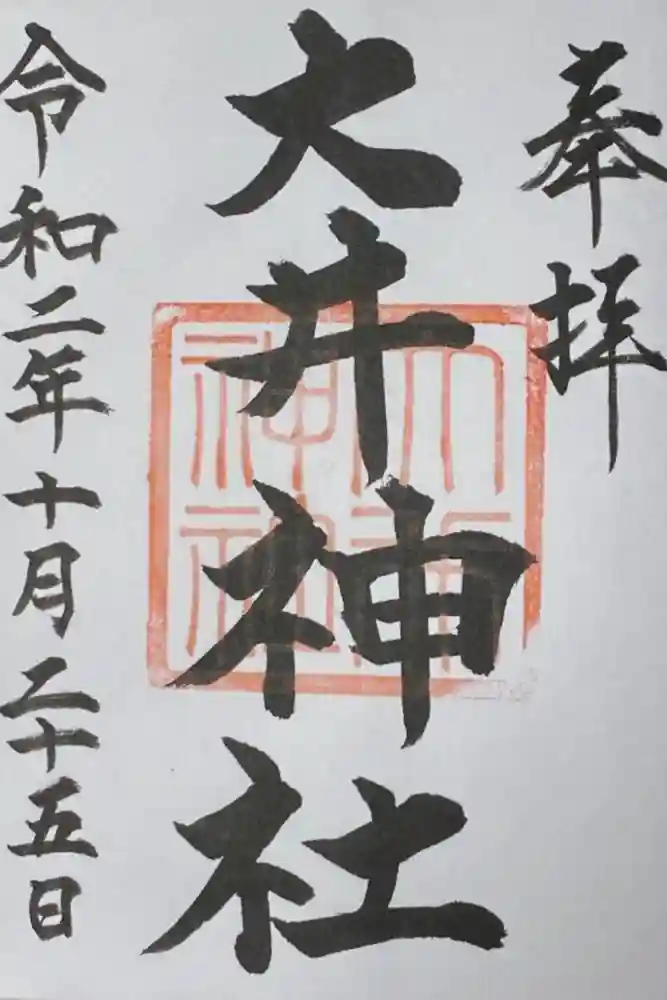 奉拝
大井神社
令和二年十月二十五日
大井神社